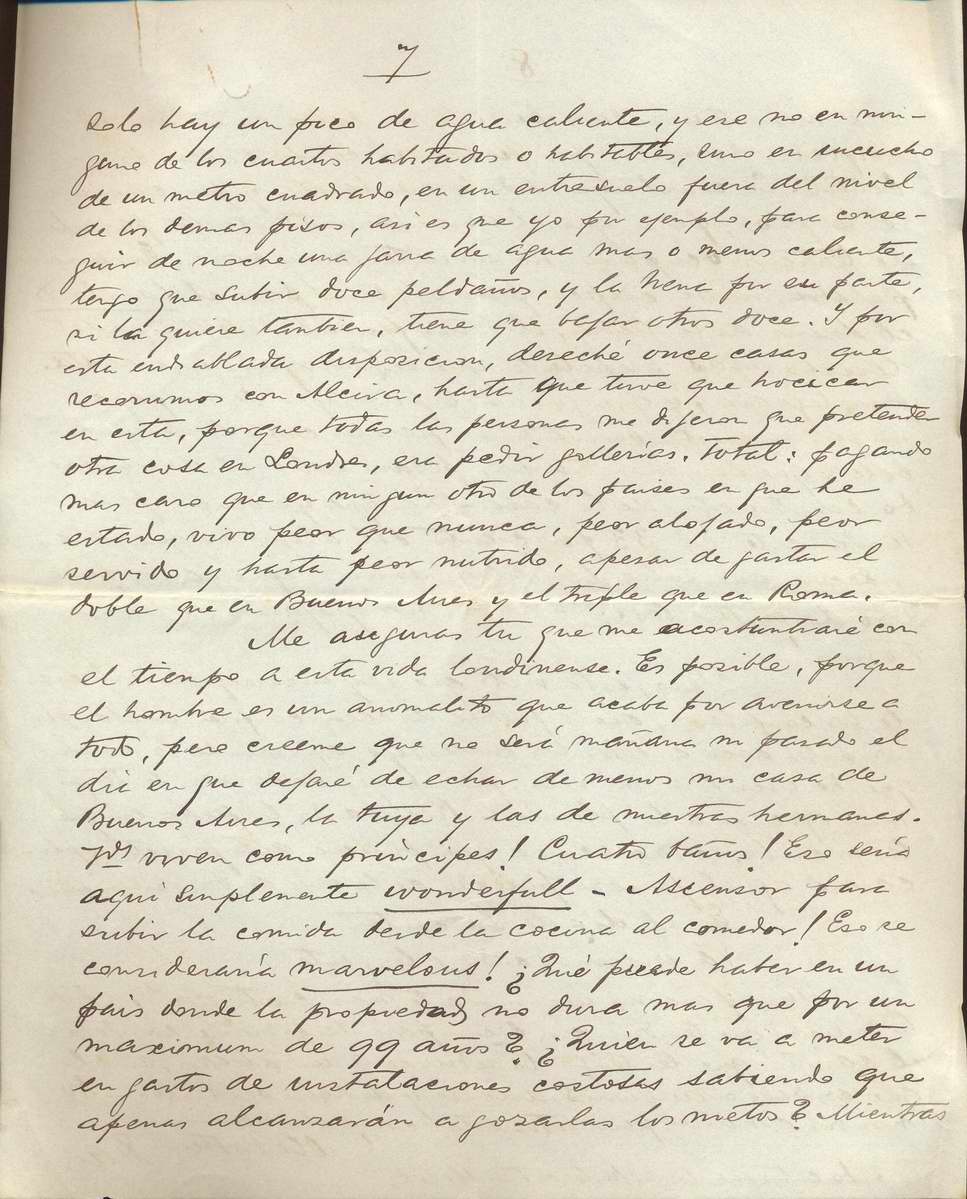 7
solo hay un pico de agua caliente, y ese no en nin-
guno de los cuartos habitados o habitables, sino en sucucho
de un metro cuadrado, en un entresuelo fuera del nivel
de los demas pisos, asi es que yo por ejemplo, para conse-
guir de noche una jarra de agua mas o menos caliente,
tengo que subir doce peldaños, y la Nena por su parte,
si la quiere tanbien, tiene que bajar otros doce. Y por
esta endiablada disposicion, deseché once casas que
recorrimos con Alcira, hasta que tuve que hocicar
en esta, porque todas las personas me dijeron que pretender
otra cosa en Londres, era pedir gollerías. Total: pagando
mas caro que en ningun otro de los paises en que he
estado, vivo peor que nunca, peor alojado, peor
servido y hasta peor nutrido, apesar de gastar el
doble que en Buenos Aires y el triple que en Roma.
Me aseguras tu que me acostumbraré con
el tiempo a esta vida londinense. Es posible, porque
el hombre es un animalito que acaba por avenirse a
todo, pero creeme que no será mañana ni pasado el
dia en que dejaré de echar de menos mi casa de
Buenos Aires, la tuya y las de nuestras hermanas.
Vds viven como príncipes! Cuatro baños! Eso sería
aqui simplemente wonderfull - Ascensor para
subir la comida desde la cocina al comedor! Eso se
consideraría marvelous! ¿Qué puede haber en un
pais donde la propiedad no dura mas que por un
maximum de 99 años? ¿Quien se va a meter
en gastos de instalaciones costosas sabiendo que
apenas alcanzarán a gozarlas los nietos? Mientras